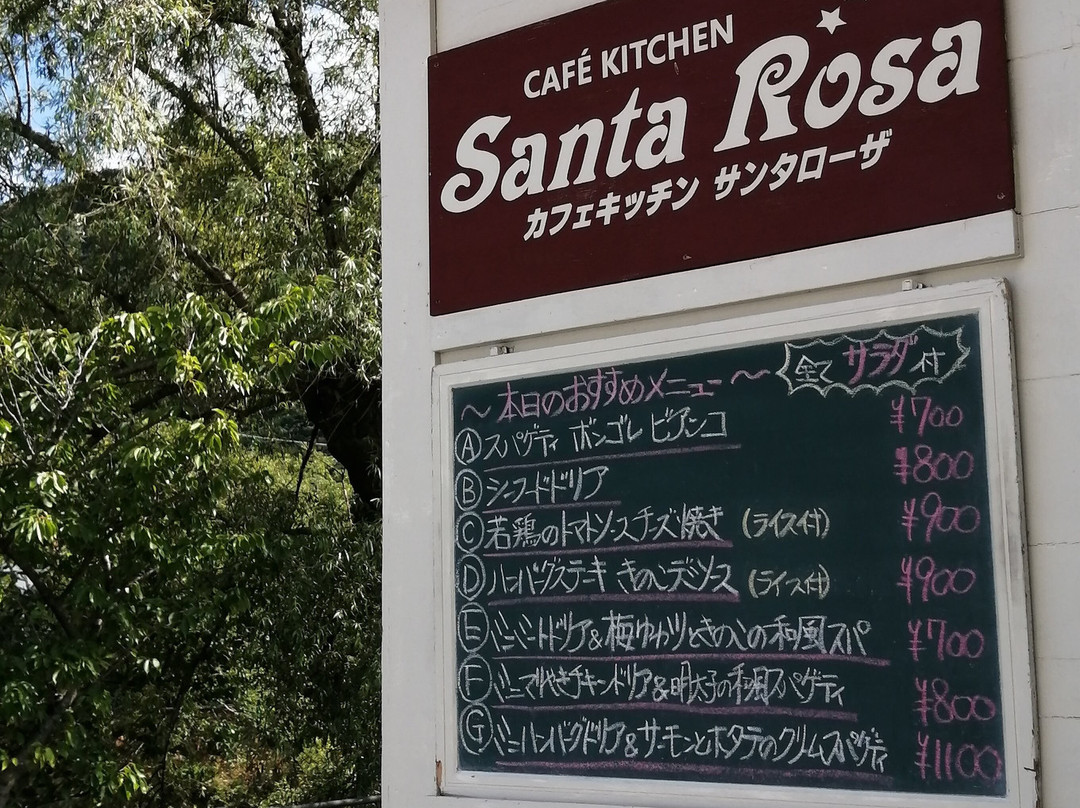 CAFÉ KITCHEN
Santa Rosa
カフェキッチン サンタローザ
全てサラダ付
～本日のおすすめメニュー～
Ⓐ スパゲティ ボンゴレ ビアンコ ¥700
Ⓑ シーフードドリア ¥800
Ⓒ 若鶏のトマトソースチーズ焼き (ライス付) ¥900
Ⓓ ハンバーグステーキ きのこデミソース (ライス付) ¥900
Ⓔ ミニミートドリア&梅かつおときのこの和風スパ ¥700
Ⓕ ミニてりやきチキンドリア&明太子の和風スパゲティ ¥800
Ⓖ ミニハンバーグドリア&サーモンとホタテのクリームスパゲティ ¥1100